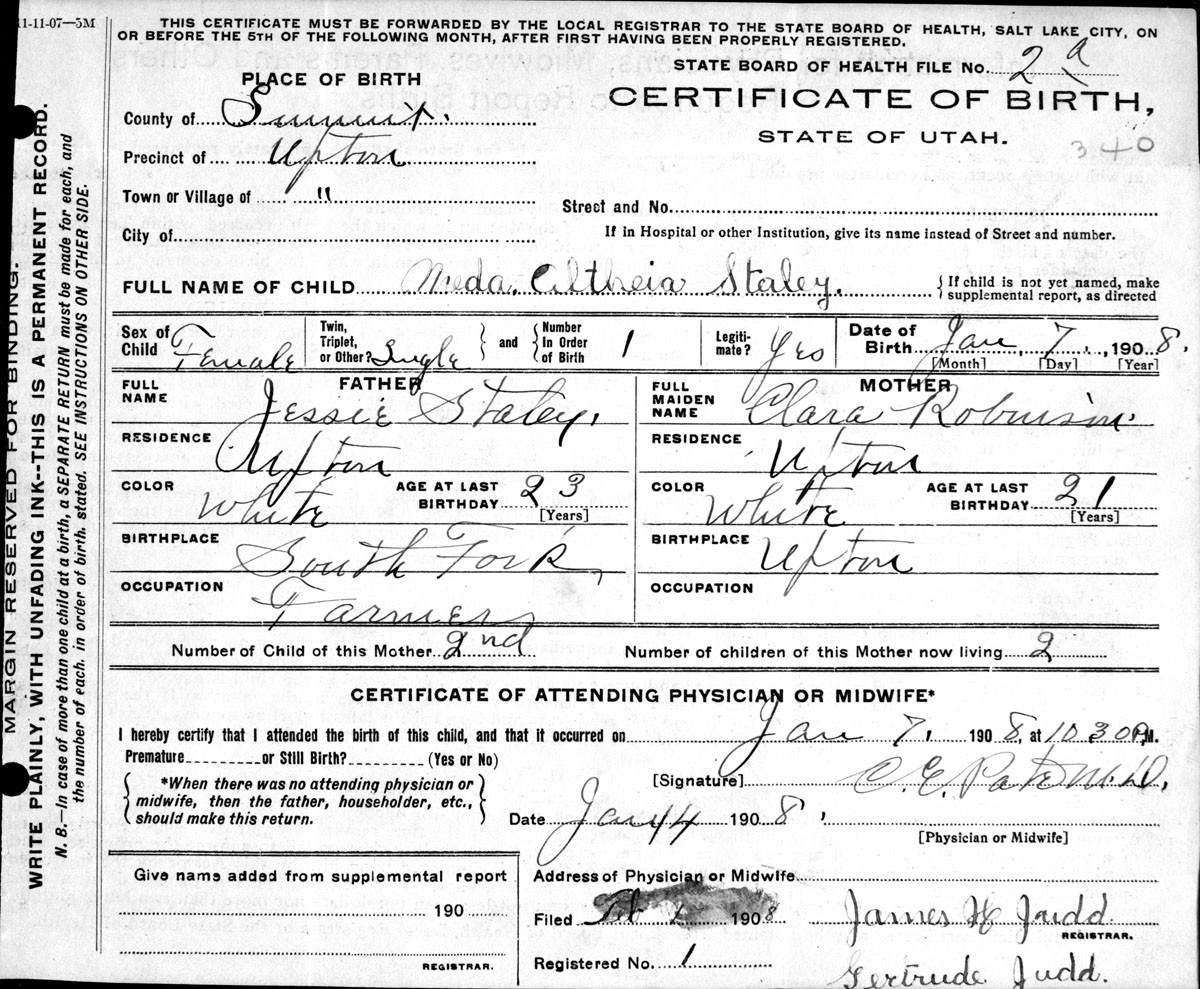 11-11-07—5M
THIS CERTIFICATE MUST BE FORWARDED BY THE LOCAL REGISTRAR TO THE STATE BOARD OF HEALTH, SALT LAKE CITY, ON
OR BEFORE THE 5TH OF THE FOLLOWING MONTH, AFTER FIRST HAVING BEEN PROPERLY REGISTERED.
MARGIN RESERVED FOR BINDING.
WRITE PLAINLY, WITH UNFADING INK--THIS IS A PERMANENT RECORD.
N. B.—In case of more than one child at a birth, a SEPARATE RETURN must be made for each, and
the number of each, in order of birth, stated. SEE INSTRUCTIONS ON OTHER SIDE.
PLACE OF BIRTH
STATE BOARD OF HEALTH FILE NO. 2 a
CERTIFICATE OF BIRTH,
STATE OF UTAH.
340
County of Summit.
Precinct of Upton
Town or Village of "
Street and No.
City of
If in Hospital or other Institution, give its name instead of Street and number.
FULL NAME OF CHILD Meda Altheia Staley. { If child is not yet named, make
supplemental report, as directed
Sex of Child Female Twin, Triplet, or Other? Single } and { Number In Order of Birth 1 Legiti-mate? Yes Date of Birth Jan, 7, 1908.
[Month] [Day] [Year]
FATHER
FULL NAME Jessie Staley.
RESIDENCE Upton
COLOR White AGE AT LAST BIRTHDAY 23
[Years]
BIRTHPLACE South Fork
OCCUPATION Farmer
MOTHER
FULL MAIDEN NAME Clara Robinson.
RESIDENCE Upton
COLOR White AGE AT LAST BIRTHDAY 21
[Years]
BIRTHPLACE Upton
OCCUPATION
Number of Child of this Mother 2nd Number of children of this Mother now living 2
CERTIFICATE OF ATTENDING PHYSICIAN OR MIDWIFE*
I hereby certify that I attended the birth of this child, and that it occurred on Jan 7, 1908, at 10.30 M.
Premature or Still Birth? (Yes or No)
{ *When there was no attending physician or
midwife, then the father, householder, etc.,
should make this return. }
[Signature] C. E. M.D.
Date Jan 1908,
[Physician or Midwife]
Give name added from supplemental report
190
REGISTRAR.
Address of Physician or Midwife
Filed Feb 1908 James H Judd
REGISTRAR.
Registered No. 1 Gertrude Judd.